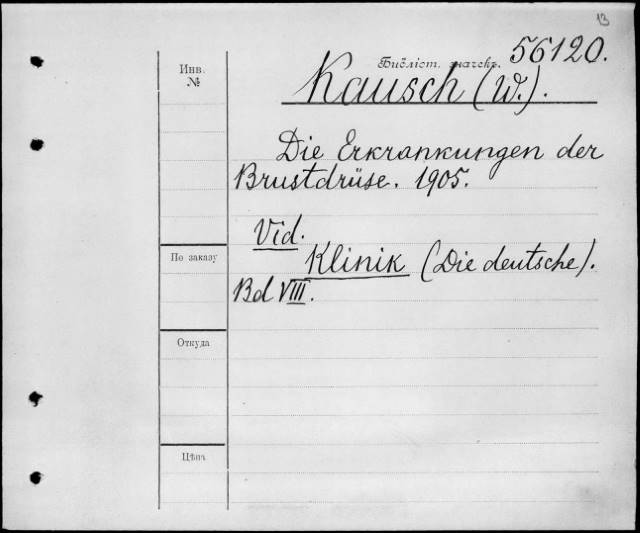 13
Библіот. значекъ. 56120.
Инв.
№
Kausch (W.).
Die Erkrankungen der
Brustdrüse. 1905.
Vid.
По заказу
Klinik (Die deutsche).
Bd VIII.
Откуда
Цѣна